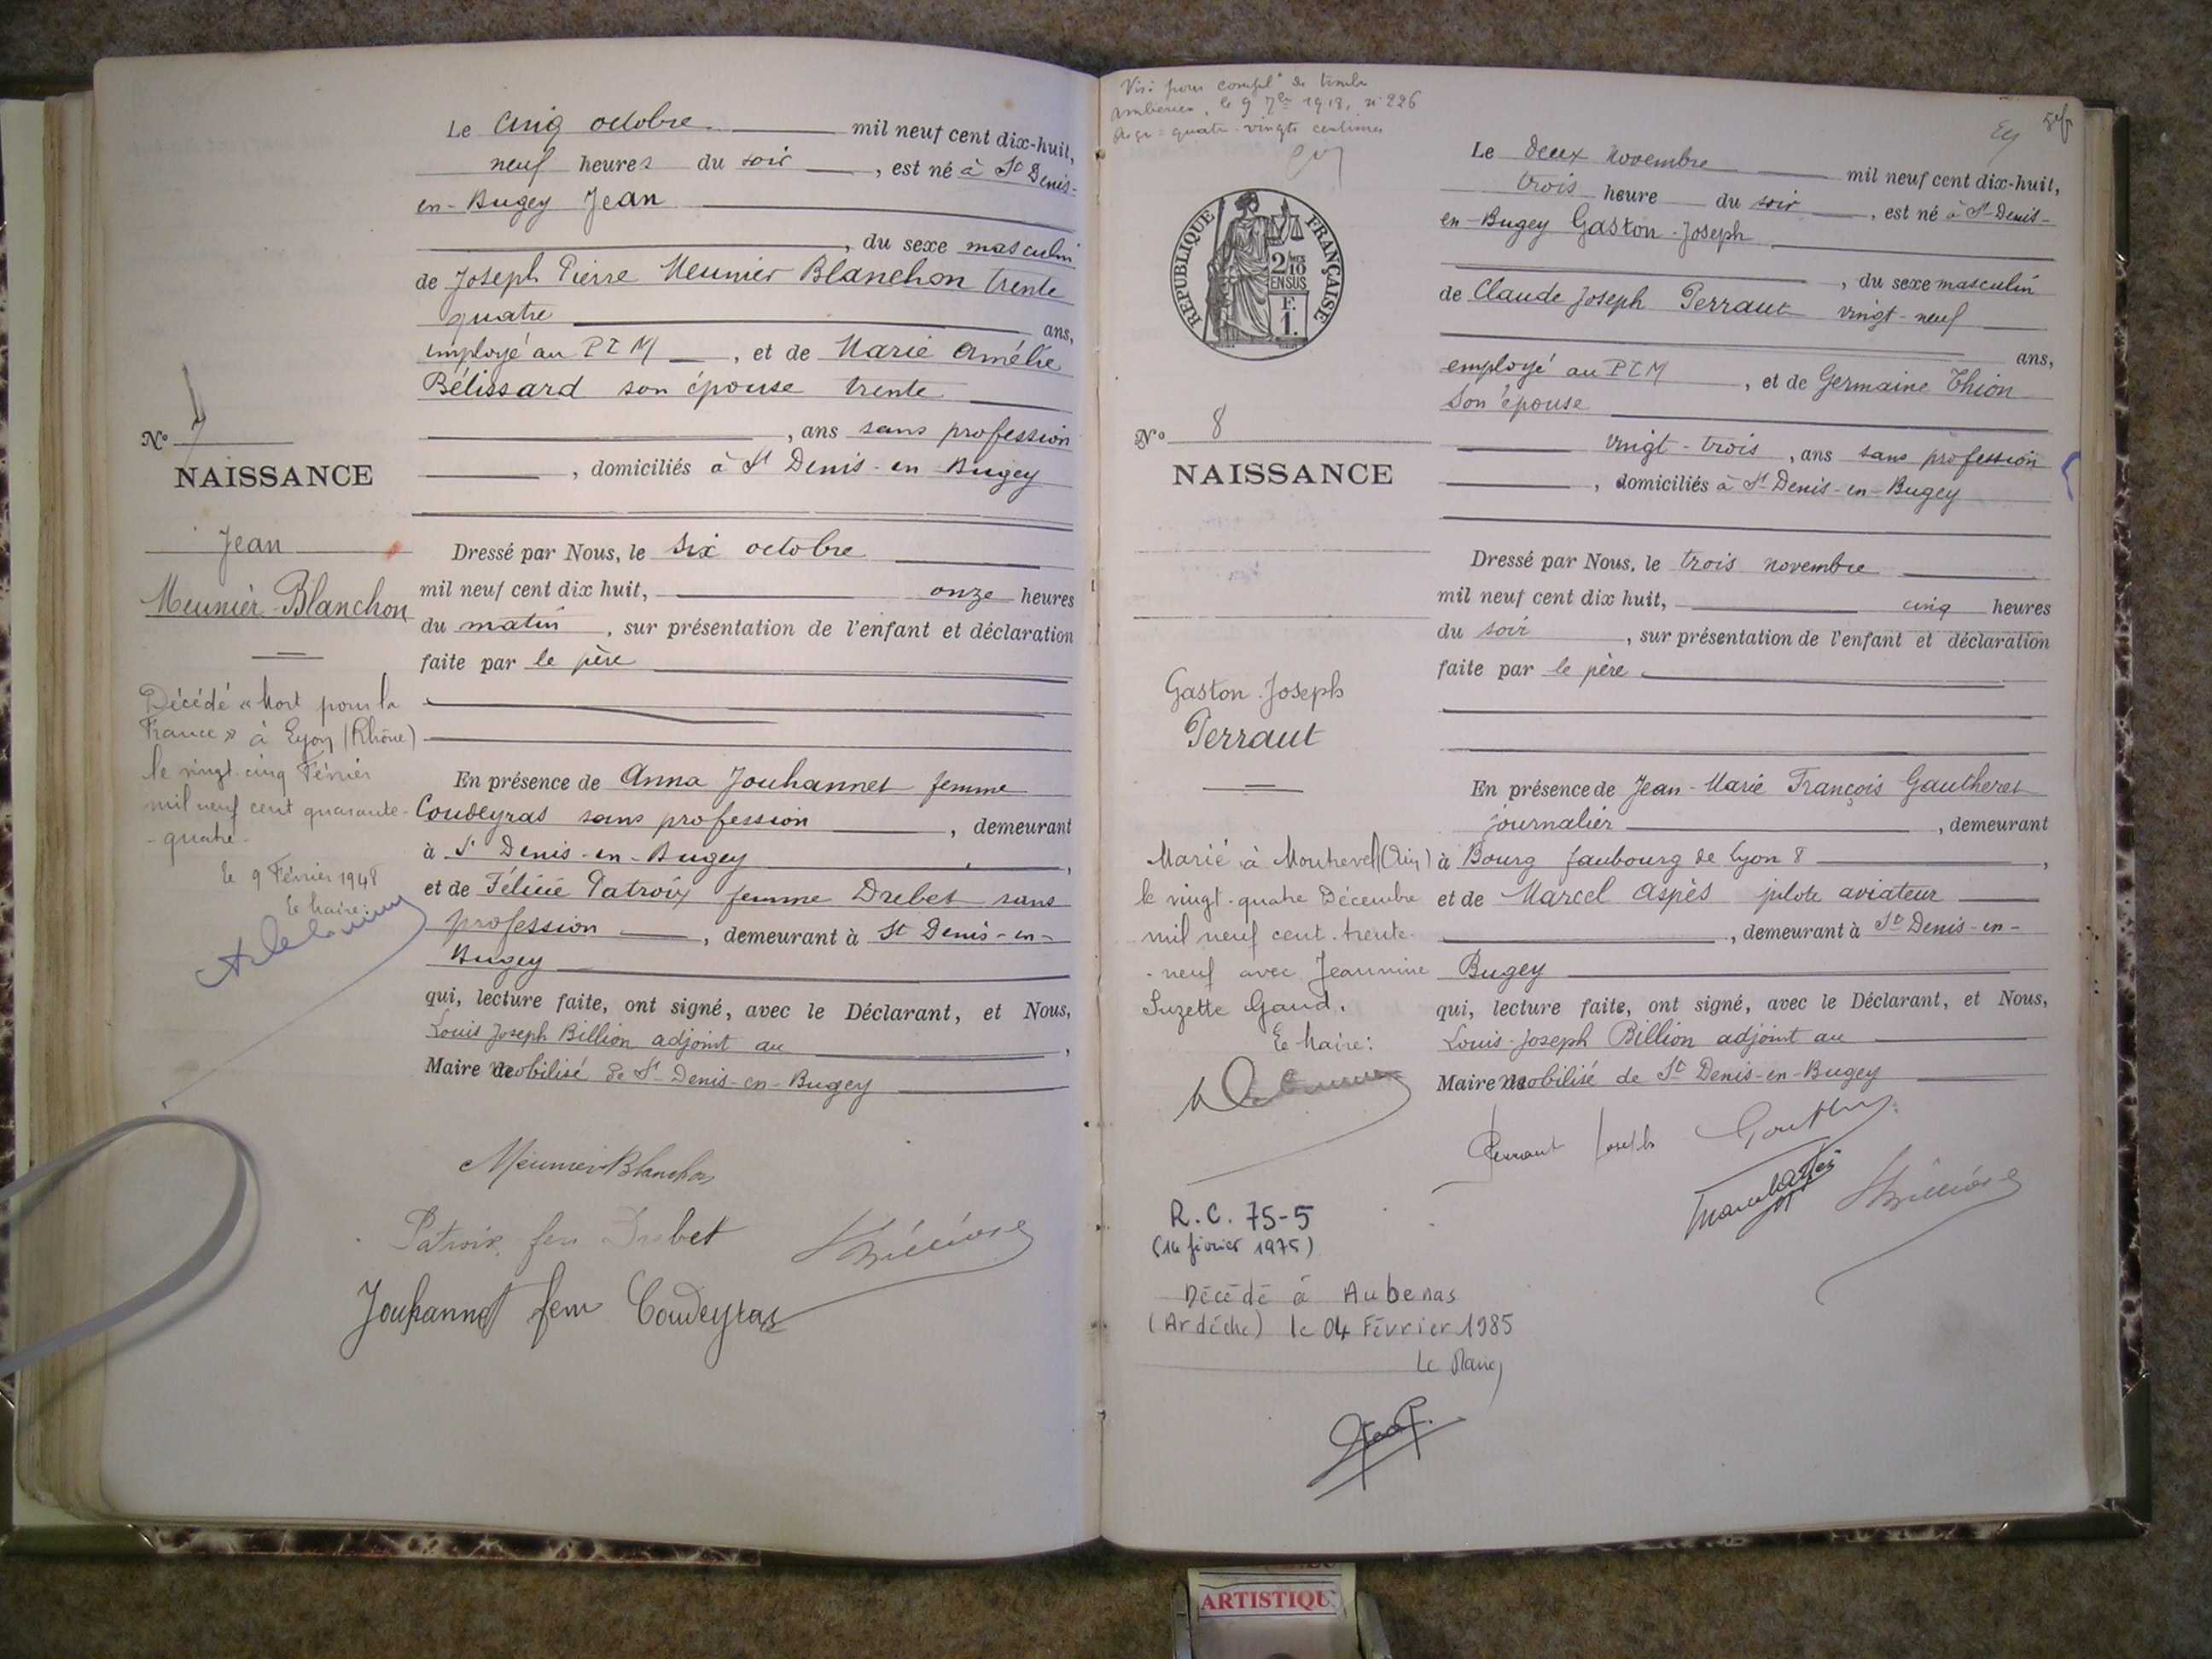 Le cinq octobre mil neuf cent dix-huit,
neuf heures du soir, est né à St Denis-
en-Bugey Jean
, du sexe masculin
de Joseph Pierre Meunier Blanchon trente
quatre ans,
employé au PLM, et de Marie Amélie
Bélissard son épouse trente
, ans sans profession
, domiciliés à St Denis-en-Bugey
N° 7
NAISSANCE
Jean
Meunier-Blanchon
Décédé « Mort pour la
France » à Lyon (Rhône)
le vingt-cinq Février
mil neuf cent quarante-
-quatre-
le 9 Février 1948
Le Maire:
Dressé par Nous, le six octobre
mil neuf cent dix huit, onze heures
du matin, sur présentation de l'enfant et déclaration
faite par le père
En présence de Anna Jouhannet femme
Coudeyras sans profession, demeurant
à St Denis-en-Bugey,
et de Félicie Patroix femme Drebet sans
profession, demeurant à St Denis-en-
Bugey
qui, lecture faite, ont signé, avec le Déclarant, et Nous,
Louis Joseph Billion adjoint au,
Maire mobilisé de St Denis-en-Bugey
Meunier Blanchon
Patroix fem Drebet
Jouhannet fem Coudeyras
Visé pour timbre
Ambérieu, le 9 7bre 1918, n° 226
quatre-vingts centimes
RÉPUBLIQUE FRANÇAISE
2/10
EN SUS
F.
1.
N° 8
NAISSANCE
Gaston-Joseph
Perraut
Marié à Montrevel (Ain)
le vingt-quatre Décembre
mil neuf cent-trente-
-neuf avec Jeannine
Suzette Gaud.
Le Maire:
R.C. 75-5
(14 février 1975)
Décédé à Aubenas
(Ardéche) le 04 Février 1985
Le Maire
Le deux novembre mil neuf cent dix-huit,
trois heure du soir, est né à St-Denis-
en-Bugey Gaston-Joseph
, du sexe masculin
de Claude Joseph Perraut vingt-neuf
ans,
employé au PLM, et de Germaine Thion
son épouse
vingt-trois, ans sans profession
, domiciliés à St Denis-en-Bugey
Dressé par Nous, le trois novembre
mil neuf cent dix huit, cinq heures
du soir, sur présentation de l'enfant et déclaration
faite par le père
En présence de Jean-Marie François Gautheret
journalier, demeurant
à Bourg faubourg de Lyon 8,
et de Marcel Aspès pilote aviateur
, demeurant à St Denis-en-
Bugey
qui, lecture faite, ont signé, avec le Déclarant, et Nous,
Louis-Joseph Billion adjoint au
Maire mobilisé de St Denis-en-Bugey
Perraut Joseph
ARTISTIQU